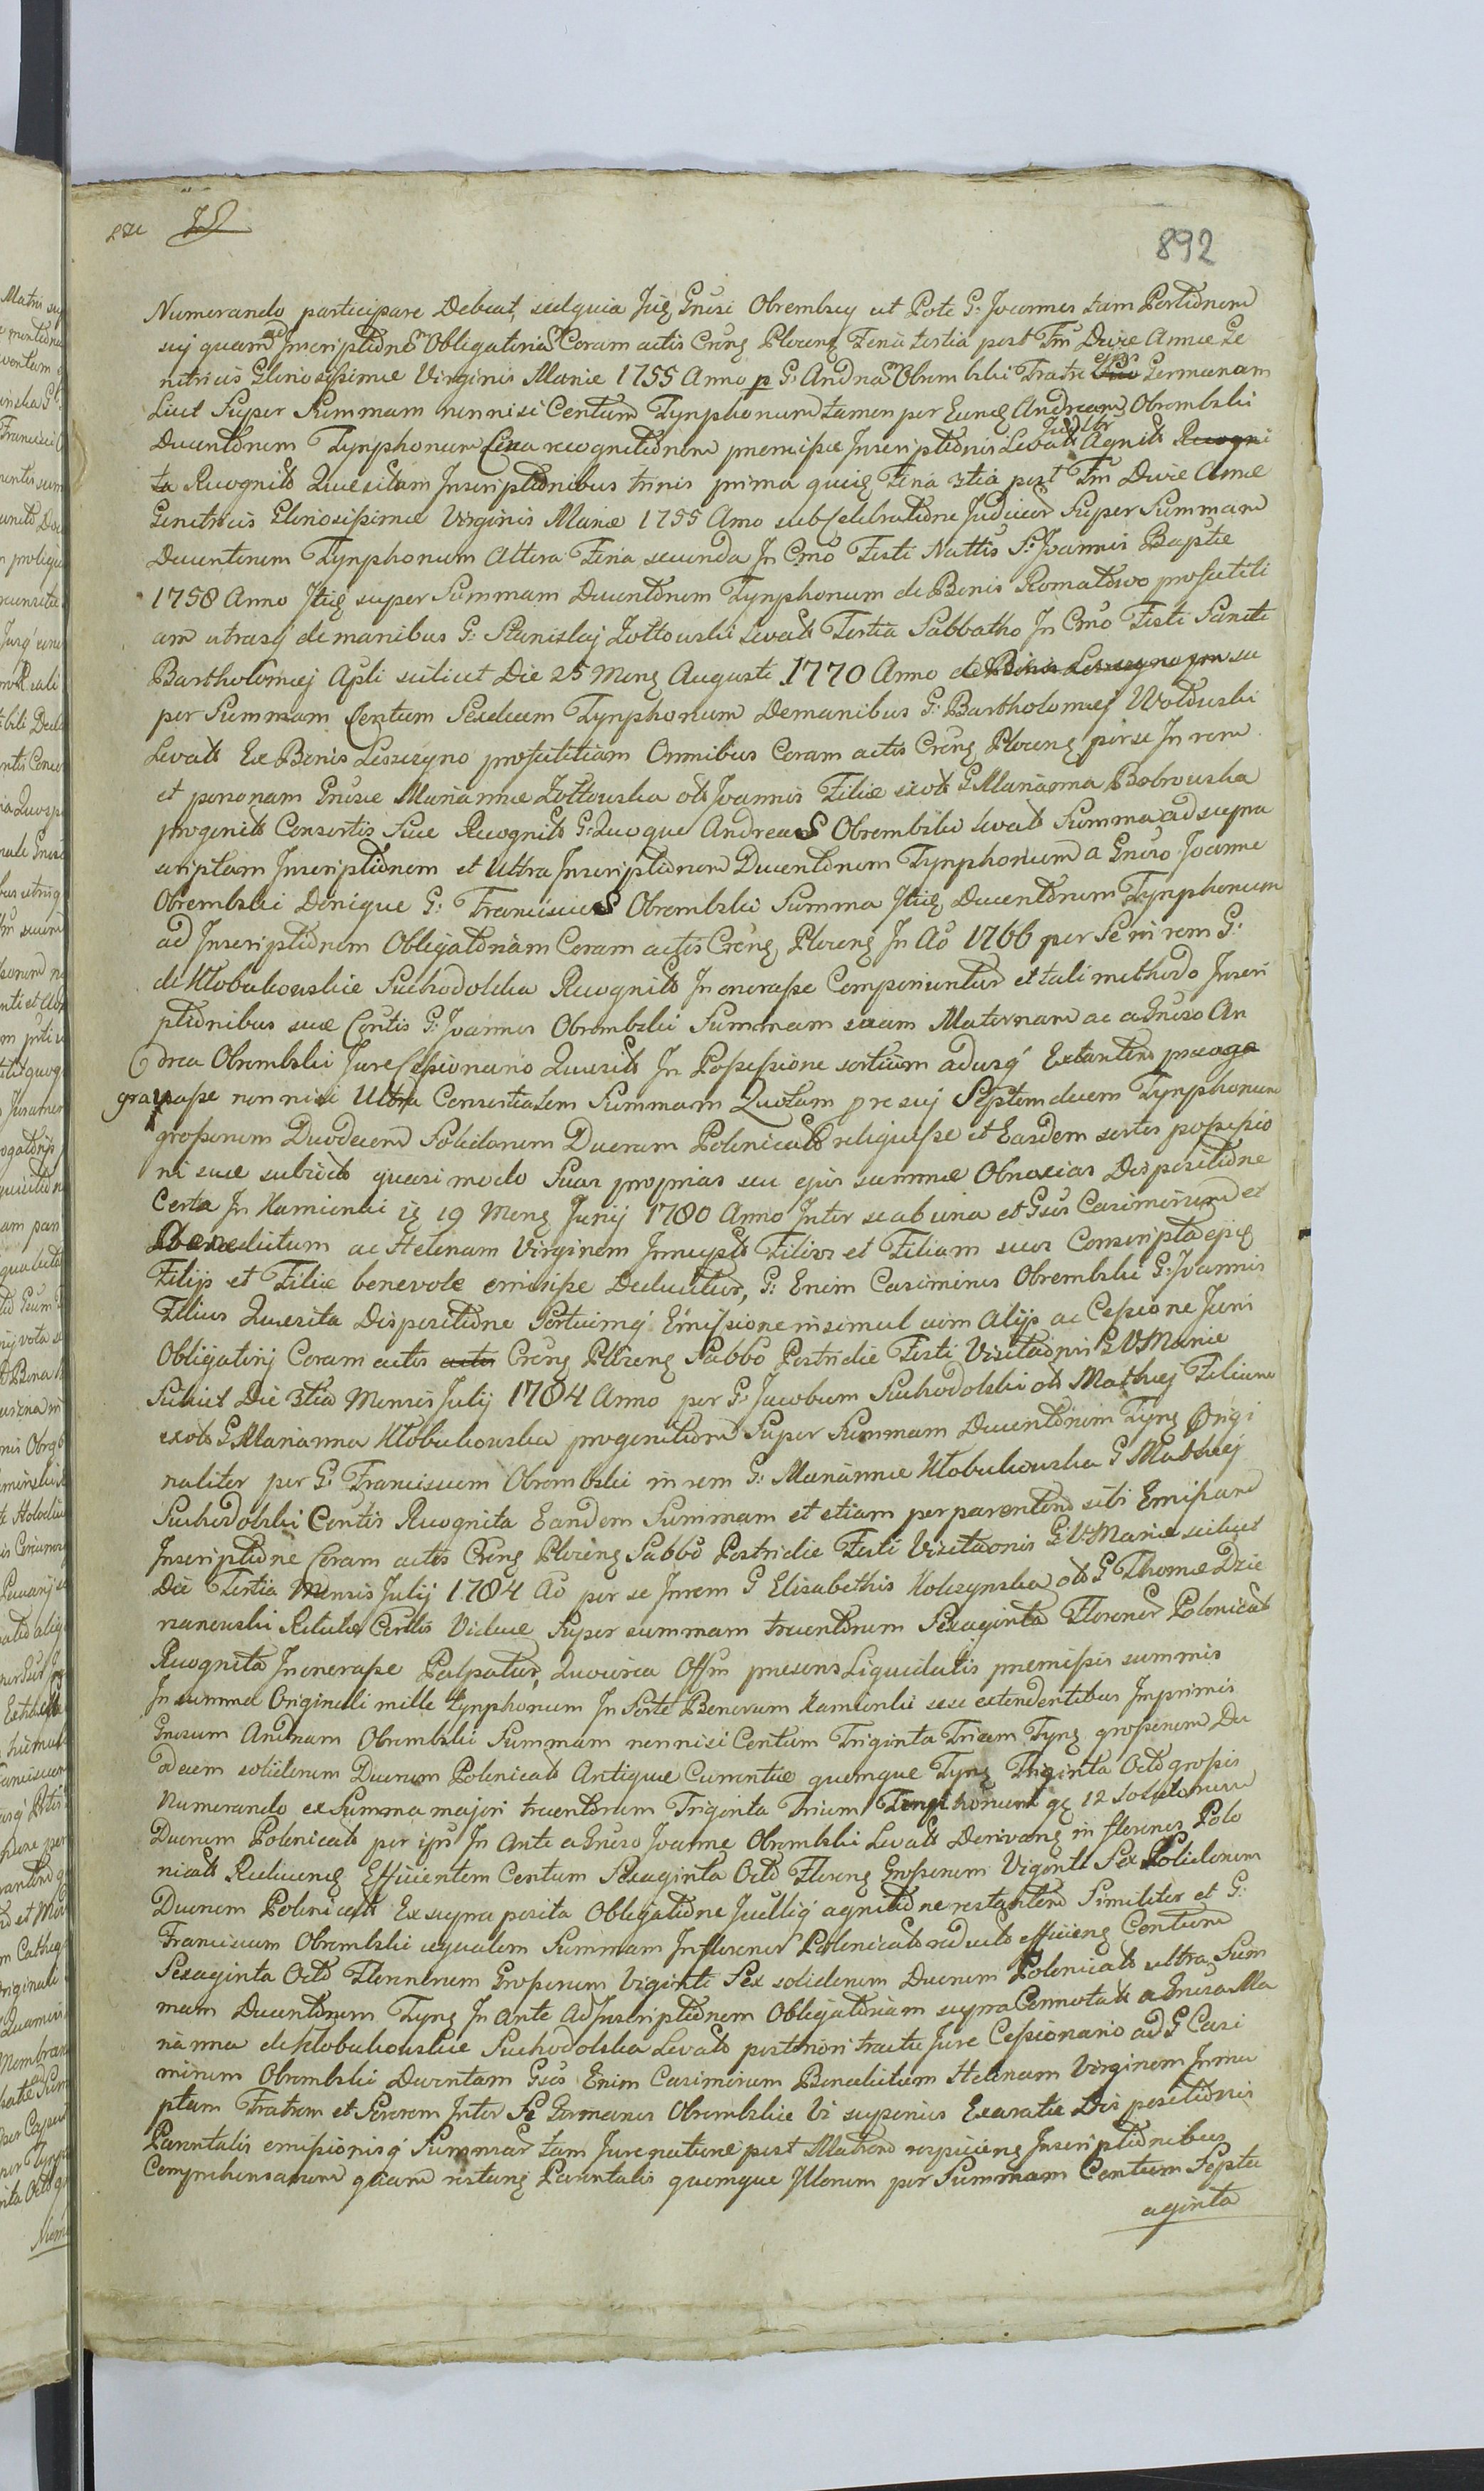 892
Numerando participare Debeat, sed quia Juz Gnrsi Obrembscy ut Pote G: Joannes tam Portionem
suj quam ad Inscriptione Obligatoria Coram actis Creng Ploceng Feria tertia post Fm Divæ Annæ Ge
nitricis Gloriosissimæ Virginis Mariæ 1755 Anno p G: Andream Obrembski Fratre Suo ejus Germanum
Licet Super Summam nonnisi Centum Tynphonum tamen per Eund Andream Obrembski
Ducentorum Tynphonum Circa recognitionem premissæ Inscriptionis Levat Judltr Agnit Recogni
ta Recognit Quæsitam Inscriptionibus trinis prima quid Feria 3tia post Fm Divæ Annæ
Genitricis Gloriosissimæ Virginis Mariæ 1755 Anno sub Celebratione Judicior Super Summam
Ducentorum Tynphonum Altera Feria secunda In Cmo Festi Nattis S: Joannis Baptæ
1758 Anno Itid super Summam Ducentorum Tynphonum de Bonis Romatowo profutili
am utrasq demanibus G: Stanislaj Zottowski Levat Tertia Sabbatho In Cmo Festi Sancti
Bartholomej Apli scilicet Die 25 Meng Augusti 1770 Anno de Bonis Leszczyno pro su
per Summam Centum Sedecem Tynphonum Demanibus G: Bartholomej Wolduski
Levat Ex Bonis Leszczyno profutitiam Omnibus Coram actis Creng Ploceng per se In rem
et personam Gnrsæ Mariannæ Zottowska ols Joannis Filiæ exols G Marianna Bobrowska
progenit Consortis Suæ Recognit G: Quoque Andreas Obrembski levat Summa ad supra
scriptam Inscriptionem et Ultra Inscriptionem Ducentorum Tynphonum a Gnrso Joanne
Obrembski Denique G: Franciscus Obrembski Summa Itid Ducentorum Tynphonum
ad Inscriptionem Obligatoriam Coram actis Creng Ploceng In Ao 1766 per Se in rem G:
de Kłobukowskie Suchodolska Recognit In onerasse Componuntur et tali methodo Inscri
ptionibus suæ Contis G: Joannes Obrembski Summam suam Maternam ac a Gnrso An
drea Obrembski Jure Cessionario Quæsit In Possessione sortium adusq Extantem
grauasse nonnisi Ultra Consortialem Summam Quotam pre suj Septemdecem Tynphonum
grossorum Duodecem Solidorum Duorum Polonicals reliquisse et Easdem sortes possessio
ni suæ subject quasi modo Suas proprias seu ejus summæ Obnoxias Dispositione
Certa In Kamionki 19 Meng Junij 1780 Anno Inter se ab una et Gsos Casimirum et
Benedictum ac Helenam Virginem Innuptt Filios et Filiam suos Conscripta ejq
Filijs et Filiæ benevole emisisse Deducitur, G: Enim Casimirus Obrembski G: Joannis
Filius Quæsita Dispositione Sortiumq Emissione insimul cum Alijs ac Cessione Juri
Obligatrij Coram actis actis Creng Ploceng Sabbo Postridie Festi Visitaonis B V Mariæ
Scilicet Die 3tia Mensis Julij 1784 Anno per G: Jacobum Suchodolski ols Mathej Filium
exols G Marianna Kłobukowska progenitum Super Summam Ducentorum Tyng Origi
naliter per G: Franciscum Obrembski in rem G: Mariannæ Kłobukowska G Mathej
Suchodolski Contis Recognita Eandem Summam et etiam per parentem sibi Emissam
Inscriptione Coram actis Creng Ploceng Sabbo Postridie Festi Visitaonis B V Mariæ scilicet
Die Tertia Mensis Julij 1784 Ao per se In rem G Elisabethis Kolczynska ols G Thomæ Dzie
rzanowski Relictæ Contis Viduæ Super summam trecentorum Sexaginta Florenor Polonicals
Recognita In onerasse Palpatur, Quocirca Offm presens Liquidatis premissis summis
In summa Originali mille tynphonum In Sorte Bonorum Kamionki sese extendentibus Imprimis
Gnrsum Andream Obrembski Summam nonnisi Centum Triginta Tricem Tyng grossorum Du
odecem solidorum Duorum Polonicals Antiquæ Currentiæ quemque Tyng Triginta Octo grossis
Numerando ex Summa majori trecentorum Triginta Trium Tynphonum gr 12 Solidorum
Duorum Polonicals per ips In Ante a Gnrso Joanne Obrembski Levat Derivang in florenos Polo
nicals Reducend Efficientem Centum Sexaginta Octo Floreng Grossorum Viginti Sex Solidorum
Duorum Polonicals Ex supra posita Obligatione Juditiq agnitione restantem Similiter et G:
Franciscum Obrembski equalem Summam In florenos Polonicals reduct efficieng Centum
Sexaginta Octo Florenorum Grossorum Viginti Sex solidorum Duorum Polonicals ultra Sum
mam Ducentorum Tyng In Ante Ad Inscriptionem Obligatoriam supra Connotat a Gnrsa Ma
rianna de Kłobukowskie Suchodolska Levat posteriori tractu Jure Cessionario ad G Casi
mirum Obrembski Deventam Gsos Enim Casimirum Benedictum Helenam Virginem Innu
ptam Fratrem et Sororem Inter Se Germanos Obrembskie Vi superius Exaratæ Dis positionis
Parentalis emissionisq Summar tam Jure naturæ post Matrem respicieng Inscriptionibus
Comprehensarum quam restang Parentalis quemque Illorum per Summam Centum Septu
aginta